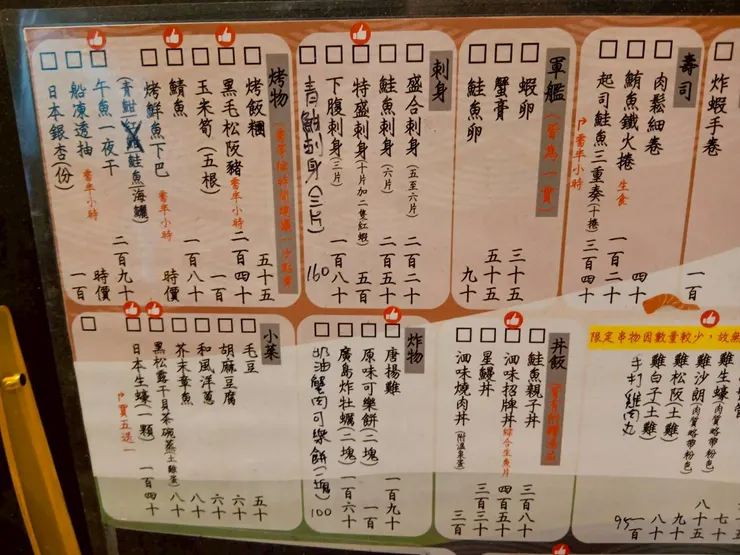 炸蝦手卷 一百
壽司
肉鬆細卷 四十
鮪魚鐵火捲 生食 一百二十
起司鮭魚三重奏(十捲) 三百四十
需半小時
軍艦(皆為一貫)
蝦卵 三十五
蟹膏 五十五
鮭魚卵 九十
刺身
盛合刺身(五至六片) 二百二十
鮭魚刺身(六片) 一百八十
特盛刺身(十片加二隻紅蝦) 五百
下腹刺身(三片) 一百八十
青魽刺身(三片) 160
烤物
烤飯糰 五十五
黑毛松阪豬 需半小時 二百四十
玉米筍(五根) 一百
鯖魚 一百八十
烤鮮魚下巴 需半小時 時價
鮭魚 海鱺)
午魚一夜干 二百九十
船凍透抽 需半小時 時價
日本銀杏(份) 一百
限定串物因數量較少,故無
雞生蠔(肉質略帶粉色) 七十
雞沙朗(肉質略帶粉色) 八十五
雞松阪(土雞) 九十
雞白子(土雞) 八十
手打雞肉丸
丼飯
鮭魚親子丼 三百八十
洄味招牌丼 綜合生魚片 四百五十
星鰻丼 三百三十
洄味燒肉丼(附溫泉蛋) 三百
炸物
唐揚雞 一百九十
原味可樂餅(二塊) 一百
廣島炸牡蠣(二塊) 一百六十
奶油蟹肉可樂餅(二塊) 100
小菜
毛豆 五十
胡麻豆腐 六十
和風洋蔥 六十
芥末章魚 八十
黑松露干貝茶碗蒸(土雞蛋) 八十
日本生蠔(一顆) 一百四十
買五送一